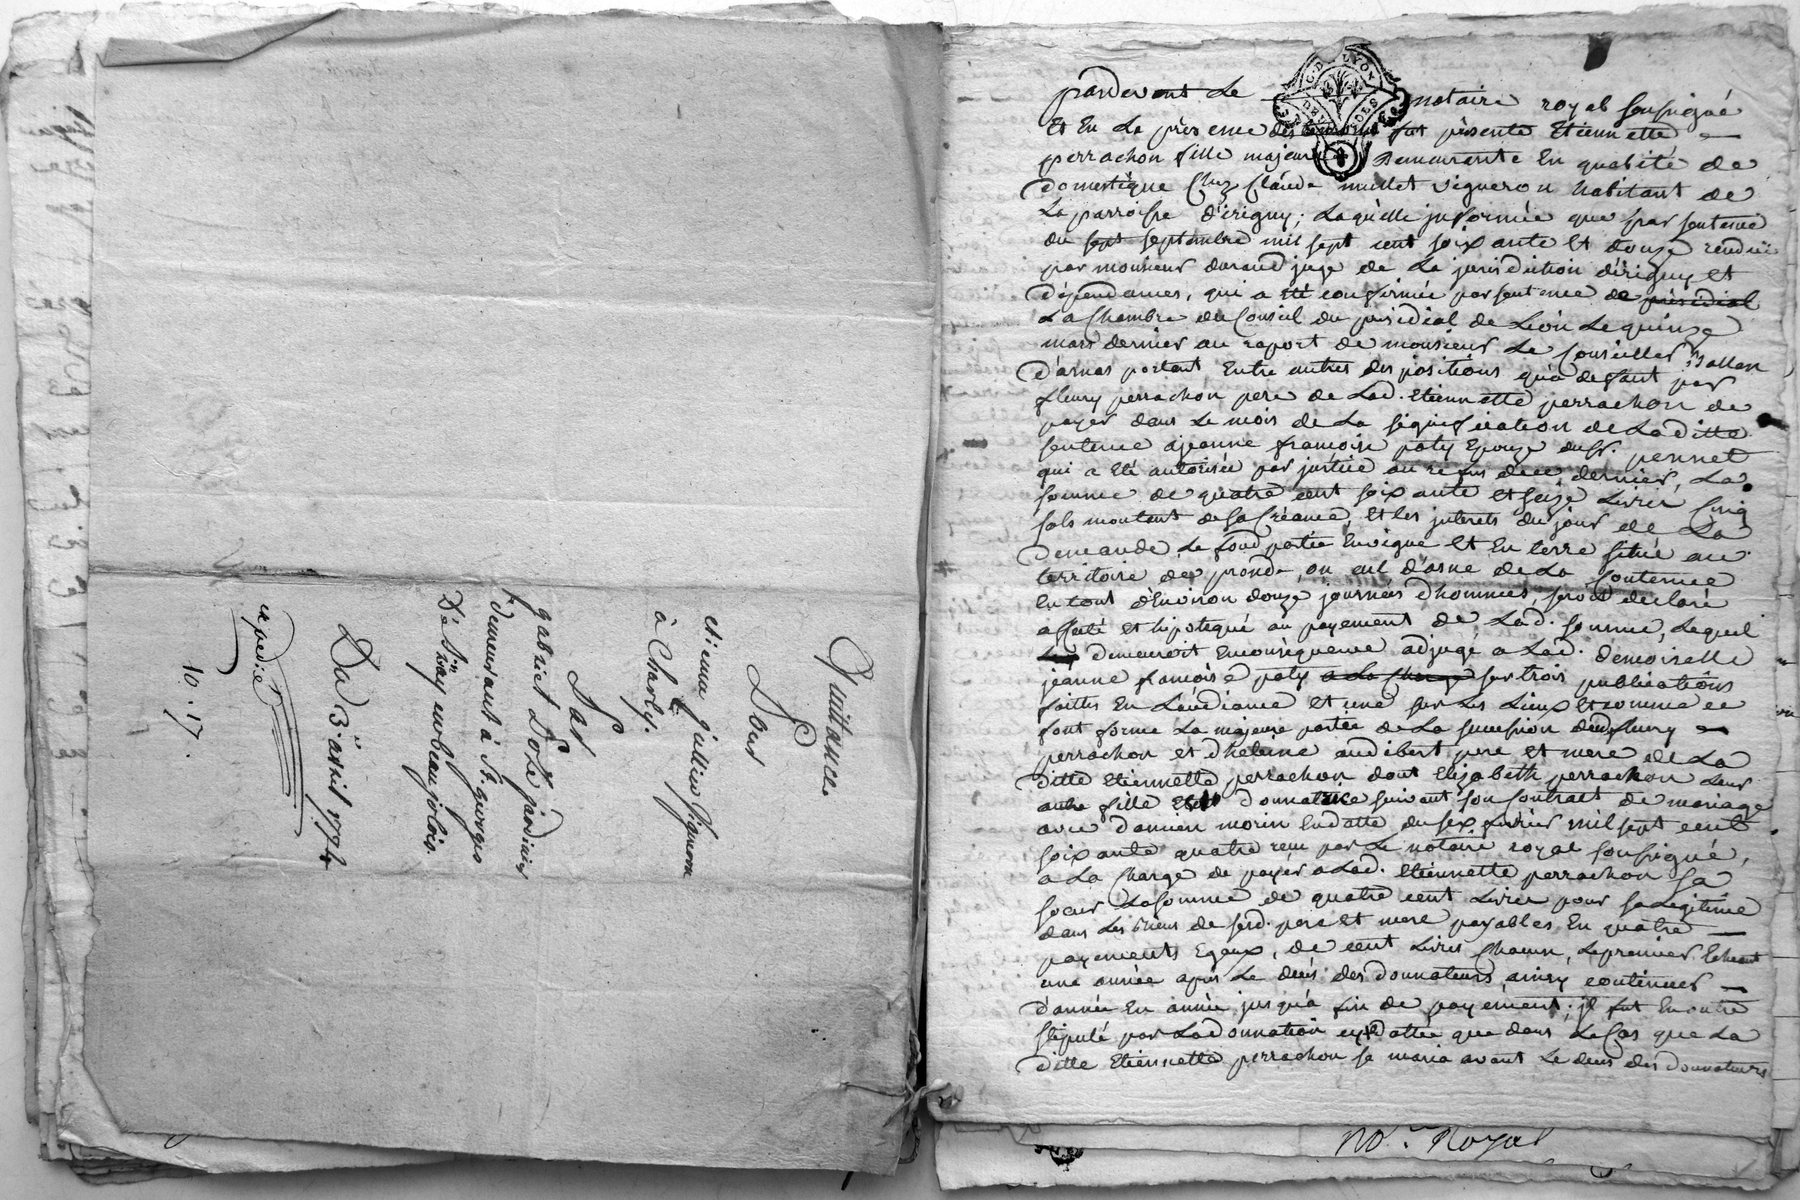 Quittance
Pour
etienne Jullien Vignron
à Charly.
Par
gabriel Dolé jardinier
demeurant à St. georges
De Rönay en beaujolois.
Du 3 avril 1774
expedié
10. 17.
pardevant Le notaire royal soussigné
Et En La présence des témoins fut présente Etiennette
perrachon fille majeure Demeurante En qualité de
Domestique Chez Claude mullet vigneron habitant de
La parroisse d'irigny; Laquelle informée que par sentence
du sept septembre mil sept cent soixante Et douze rendüe
par monsieur durand juge de La jurisdiction d'irigny et
Dépendances, qui a été confirmée par sentence de présidial
La Chambre du Conseil du présidial de Lion Le quinze
mars dernier au raport de monsieur Le Conseiller Ballan
D'arnas portant Entre autres dispositions qu'a defaut par
fleury perrachon pere de Lad. Etiennette perrachon de
payer dans Le mois de La signification de Laditte
sentence a jeanne françoise paty Epouze du sr. pennet
qui a été autorisée par justice au refus de ce dernier, La
somme de quatre cent soixante et seize Livres Cinq
sols montant de sa Créance, Et les interets du jour de La
Demande Le fond partie En vigne Et En terre situé au
territoire de prond, ou cul d'asne de La Contenue
En tout d'Environ douze journées d'hommes, seroit declaré
affecté et hipotequé au payement de Lad. somme, Lequel
demeurort En conséquence adjugé a Lad. demoiselle
jeanne françoise paty a La Charge sur trois publications
faittes En L'audiance et une sur Les Lieux Et comme ce
font forme La majeure partie de La succession dud. fleury
perrachon et d'helenne audibert pere et mere de La
ditte Etiennette perrachon dont Elizabeth perrachon Leur
autre fille Est donnatrice suivant son Contract de mariage
avec damien morin En datte du six fevrier mil sept cent
soixante quatre reçu par Le notaire royal soussigné,
a La Charge de payer a Lad. Etiennette perrachon sa
soeur La somme de quatre cent Livres pour sa Legitime
dans Les biens de sesd. pere et mere payables En quatre
payements Egaux, de cent Livres Chacun, Le premier Echeant
une année après Le decès des donnateurs, ainsy continuer
d'année En année jusqu'a fin de payement; il fut En outre
stipulé par La donnation cy dattée que dans Le Cas que La
ditte Etiennette perrachon se maria avant Le deces des donnateurs
no.re Royal
C. D. LYON
DEUX SOLS